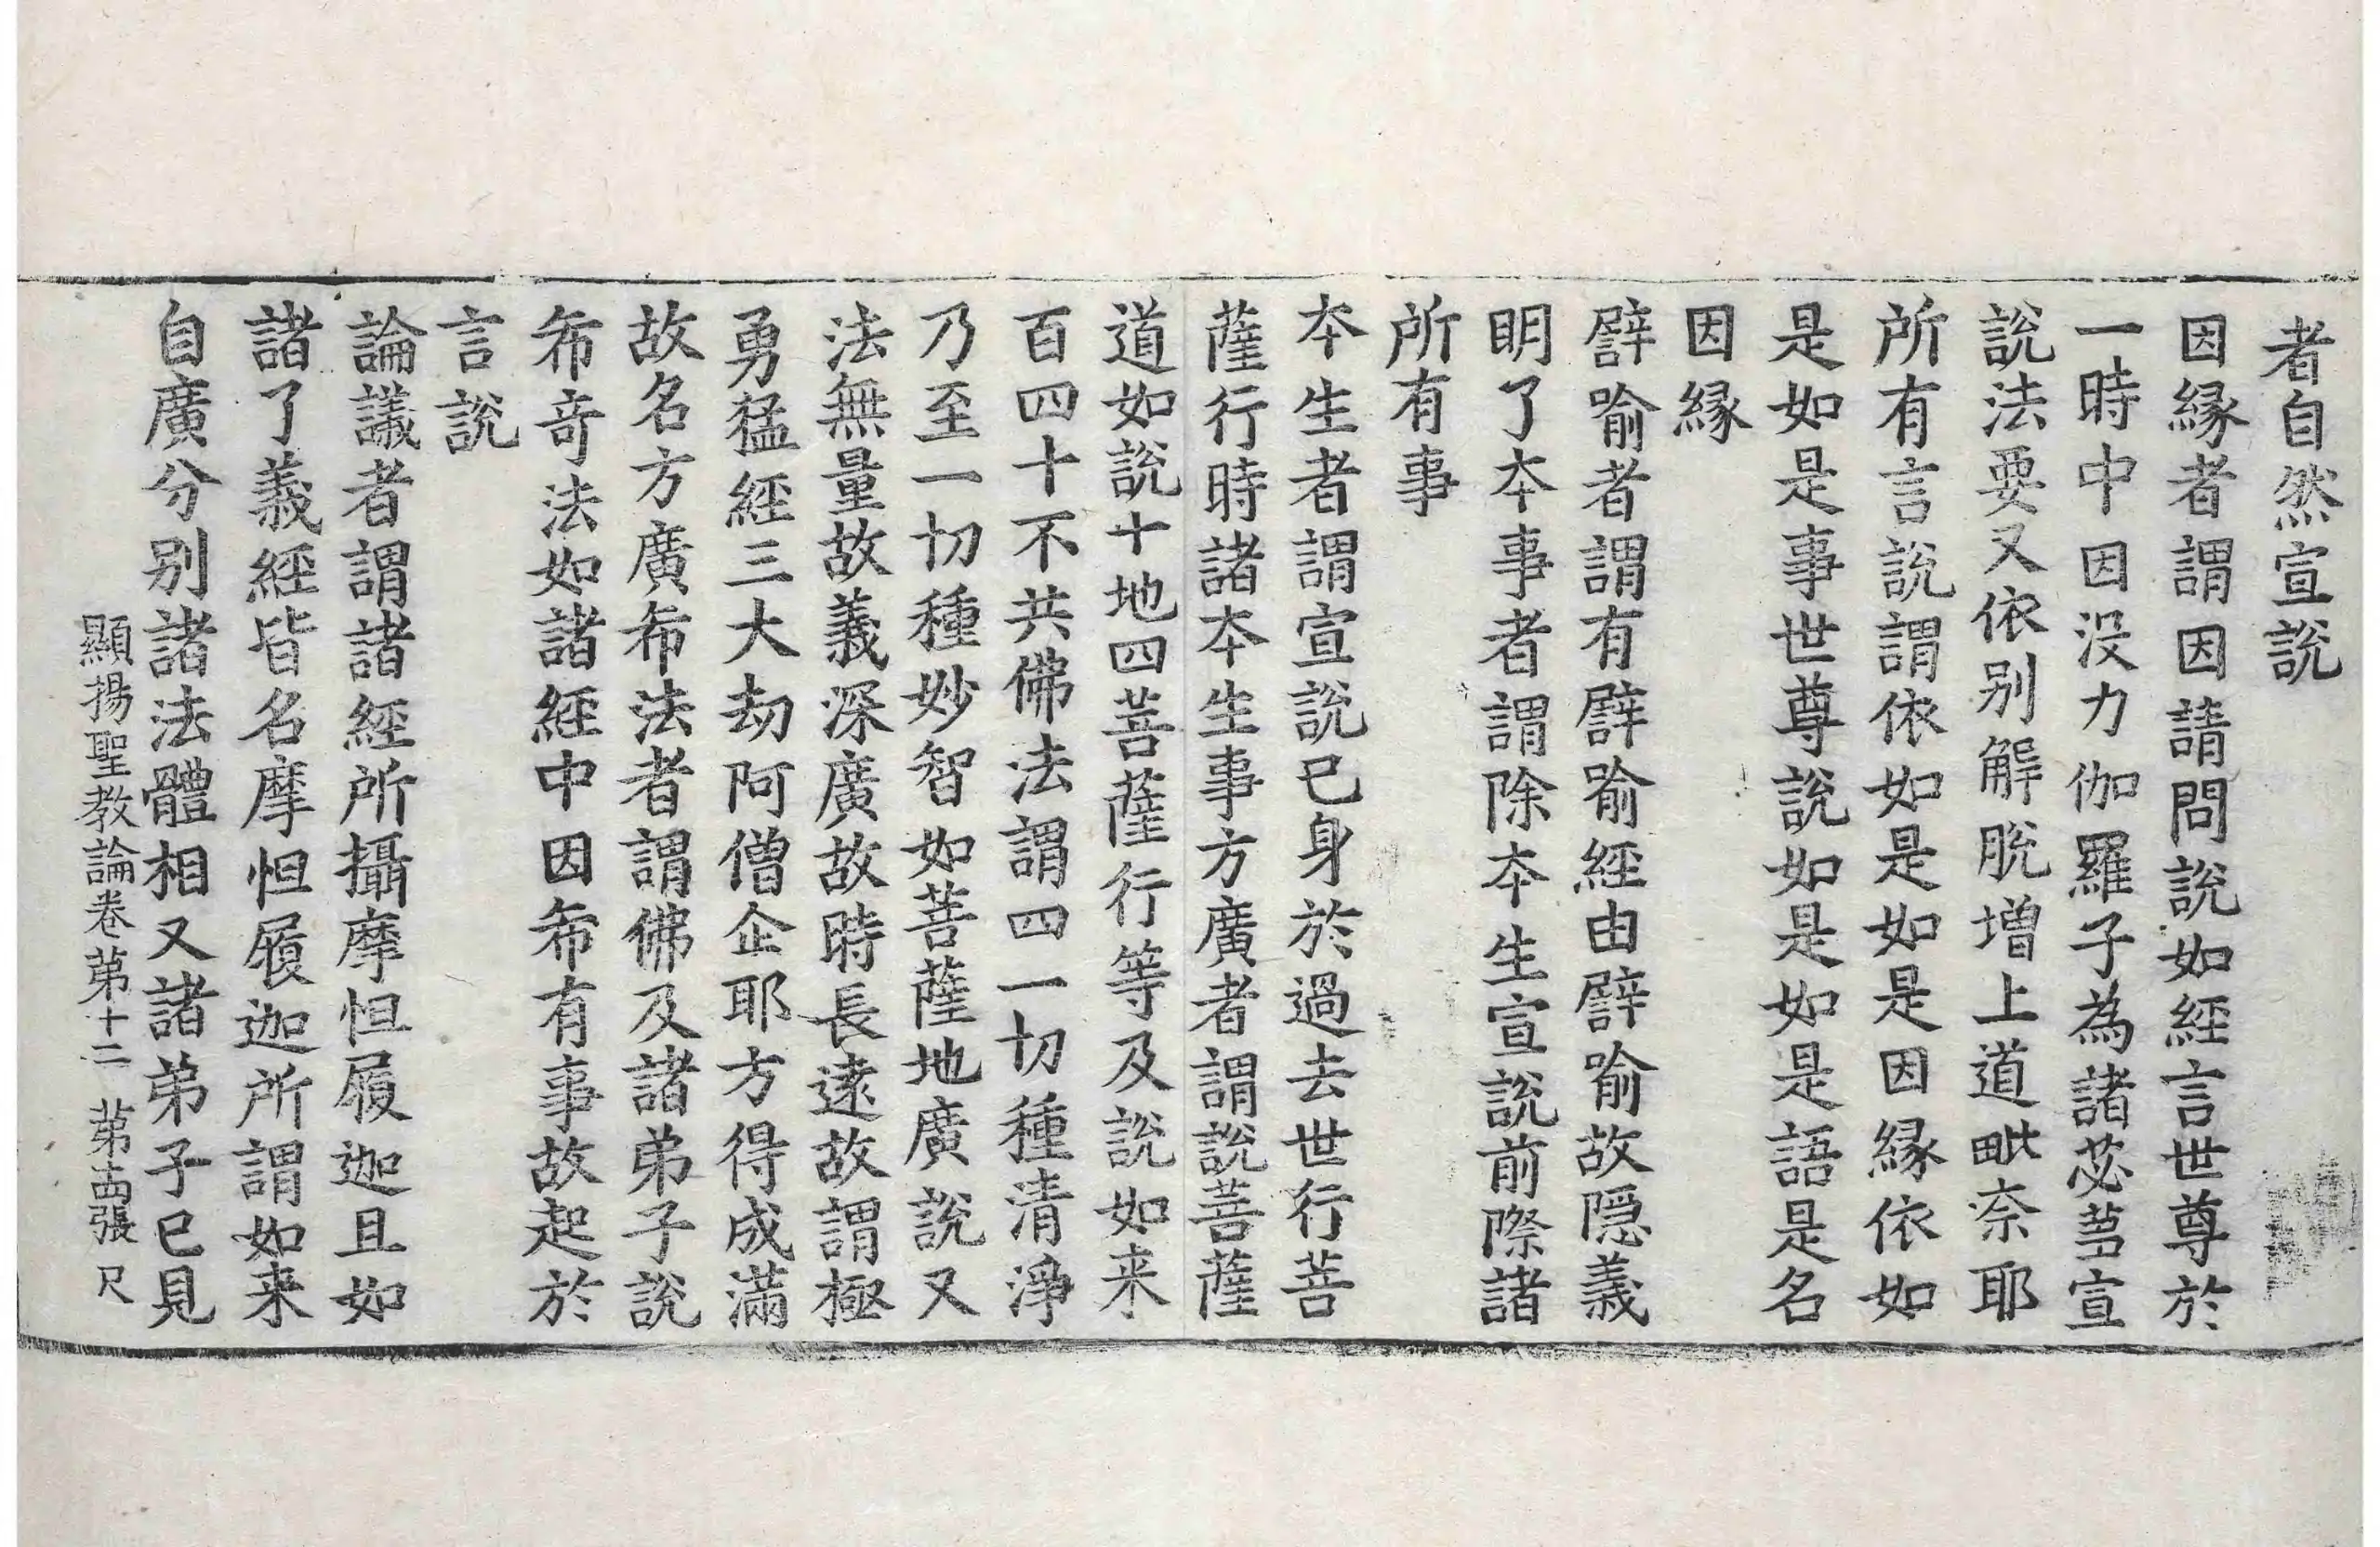 者自然宣說
因緣者謂因請問說如經言世尊於
一時中因没力伽羅子為諸苾蒭宣
說法要又依别解脫增上道毗奈耶
所有言說謂依如是如是因緣依如
是如是事世尊說如是如是語是名
因緣
譬喻者謂有譬喻經由譬喻故隠義
明了本事者謂除本生宣說前際諸
所有事
本生者謂宣說已身於過去世行菩
薩行時諸本生事方廣者謂說菩薩
道如說十地四菩薩行等及說如来
百四十不共佛法謂四一切種清淨
乃至一切種妙智如菩薩地廣說又
法無量故義深廣故時長遠故謂極
勇猛經三大劫阿僧企耶方得成滿
故名方廣希法者謂佛及諸弟子說
希奇法如諸經中因希有事故起於
言說
論議者謂諸經所攝摩怛履迦且如
諸了義經皆名摩怛履迦所謂如来
自廣分别諸法體相又諸弟子已見
顯揚聖教論卷苐十二 苐十四張 尺